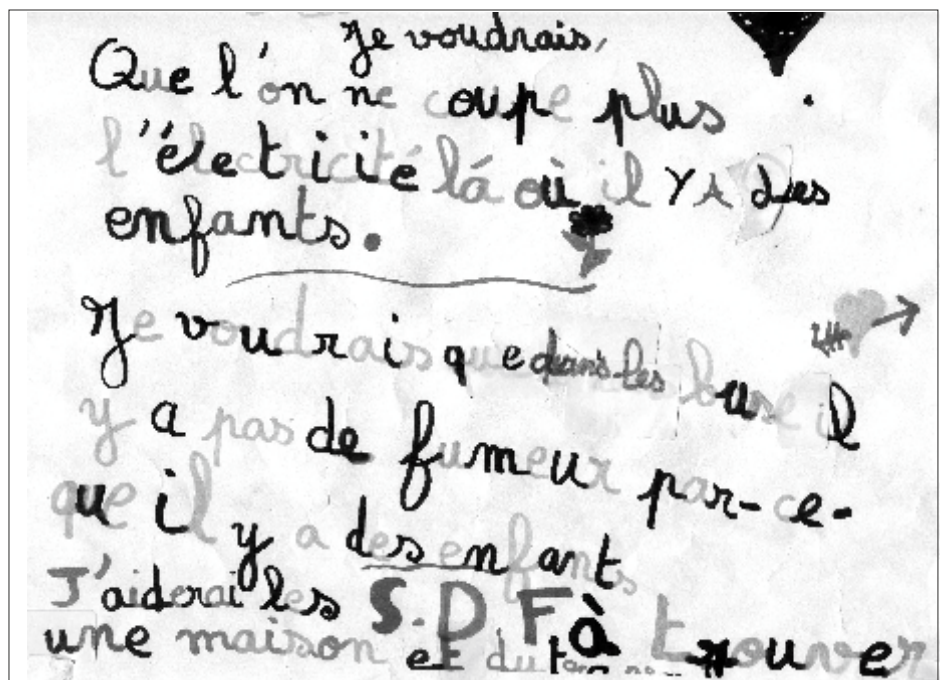 Je voudrais,
Que l'on ne coupe plus
l'électricité là où il Y A des
enfants.
Je voudrais que dans les buse il
y a pas de fumeur par-ce-
que il y a des enfants
J'aiderai les S.D F à trouver
une maison et du